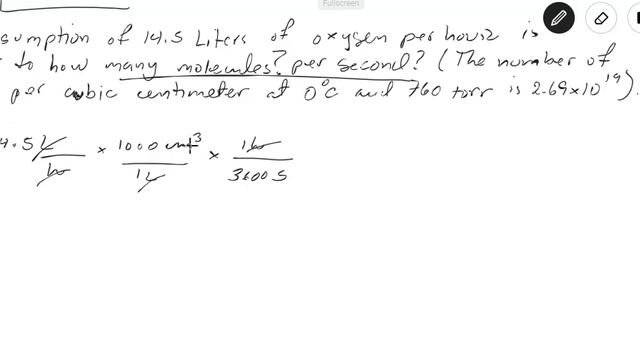 Fullscreen
sumption of 14.5 Liters of oxygen per hour is
to how many molecules? per second? (The number of
per cubic centimeter at 0°C and 760 torr is 2.69 x 10^19).
4.5 L/hr x 1000 cm^3/1L x 1hr/3600 S